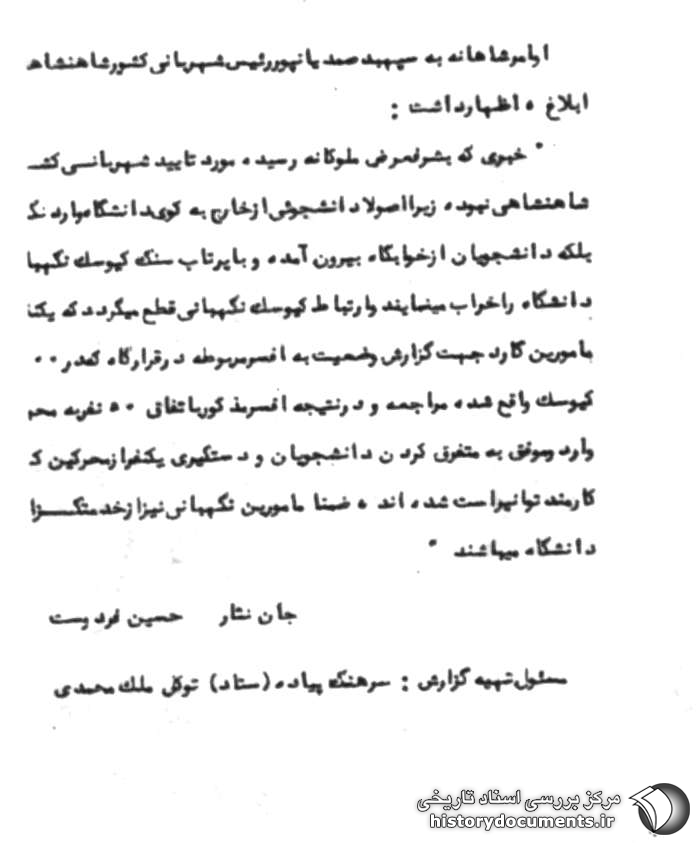 اوامر شاهانه به سپهبد صمدیانپور رئیس شهربانی کشور شاهنشاهـ
ابلاغ ، اظهار داشت :
" خبری که بشرفعرض ملوکانه رسیده مورد تایید شهربانی کشـ
شاهنشاهی نبوده زیرا اصولا دانشجوئی از خارج به کوی دانشگاه وارد نکـ
بلکه دانشجویان از خوابگاه بیرون آمده و با پرتاب سنگ کیوسک نگهبا
دانشگاه را خراب مینمایند و ارتباط کیوسک نگهبانی قطع میگردد که یکنـ
مامورین گارد جهت گزارش وضعیت به افسر مربوطه در قرارگاه که در ۰۰
کیوسک واقع شده مراجعه و در نتیجه افسر مذکور باتفاق ۵۰ نفر به محـ
وارد و موفق به متفرق کردن دانشجویان و دستگیری یکنفر از محرکین کـ
کارمند توانیر است شده اند ، ضمنا مامورین نگهبانی نیز از خدمتگـزا
دانشگاه میباشند "
جان نثار حسین فردوست
مسئول تهیه گزارش : سرهنگ پیاده (ستاد) توکل ملک محمدی
مرکز بررسی اسناد تاریخی
historydocuments.ir